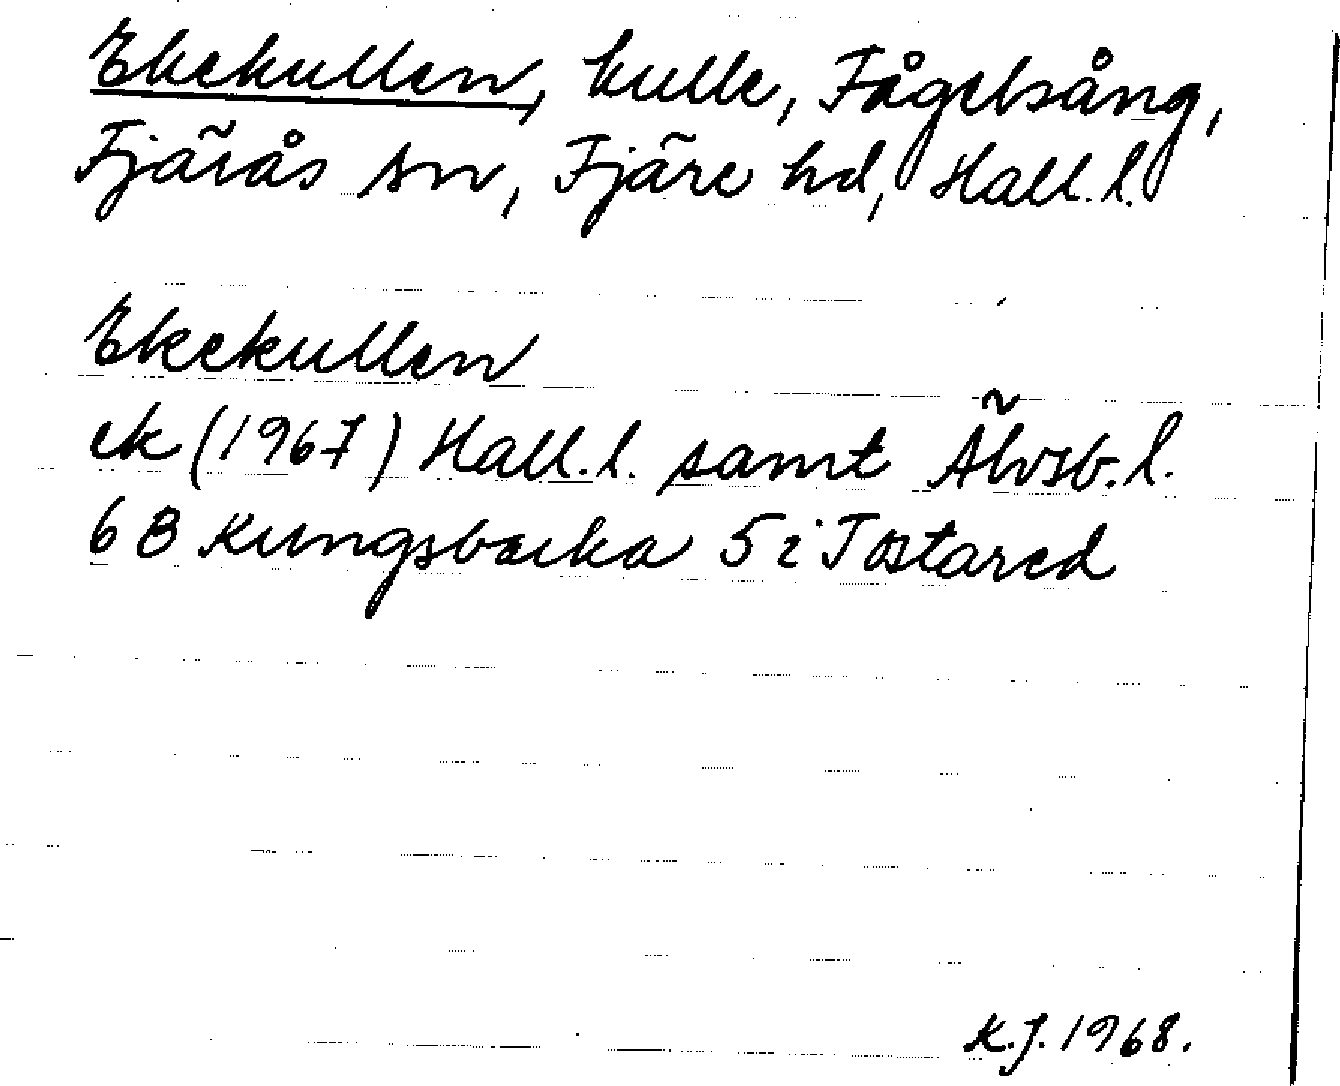 Ekekullen, kulle, Fågelsång,
Fjärås sn, Fjäre hd, Hall. l.
Ekekullen
ek (1967) Hall. l. samt Älvsb. l.
6 B Kungsbacka 5 i Tostared
K.J. 1968.